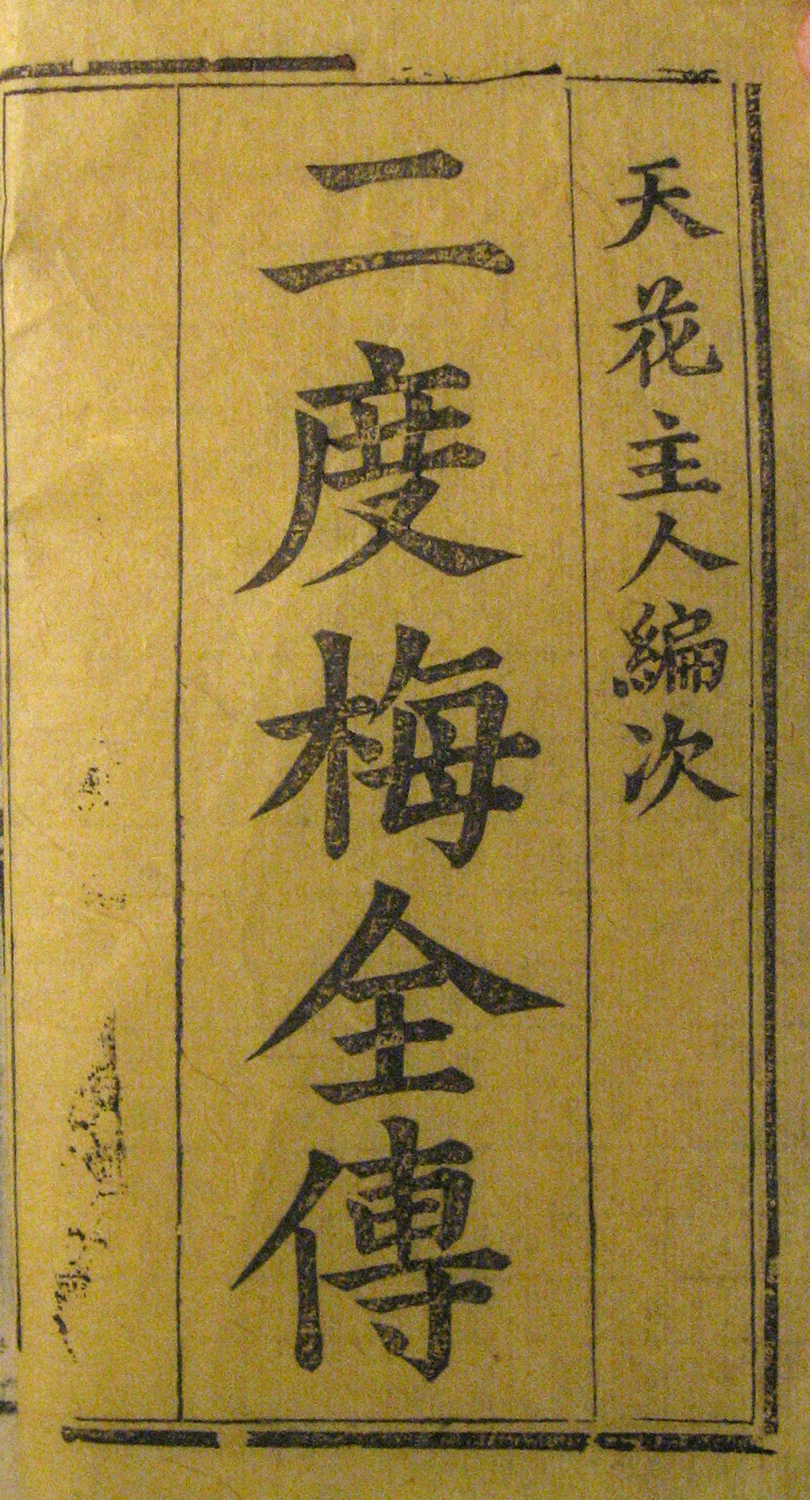 天花主人編次
二度梅全傳